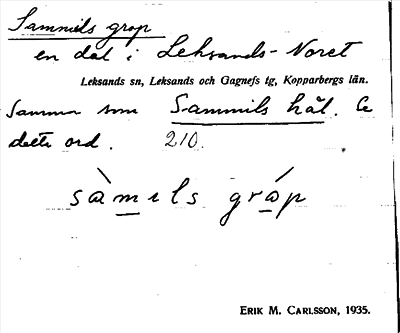 Sammils grop
en dal i Leksands-Noret
Leksands sn, Leksands och Gagnefs tg, Kopparbergs län.
Samma som Sammils hål. Se
detta ord. 210.
sàmɪls gráp
ERIK M. CARLSSON, 1935.